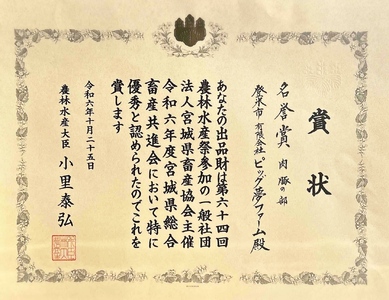 賞状
名誉賞 肉豚の部
登米市 有限会社ピッグ夢ファーム殿
あなたの出品財は第六十四回
農林水産祭参加の一般社団
法人宮城県畜産協会主催
令和六年度宮城県総合
畜産共進会において特に
優秀と認められたのでこれを
賞します
令和六年十月二十五日
農林水産大臣 小里泰弘